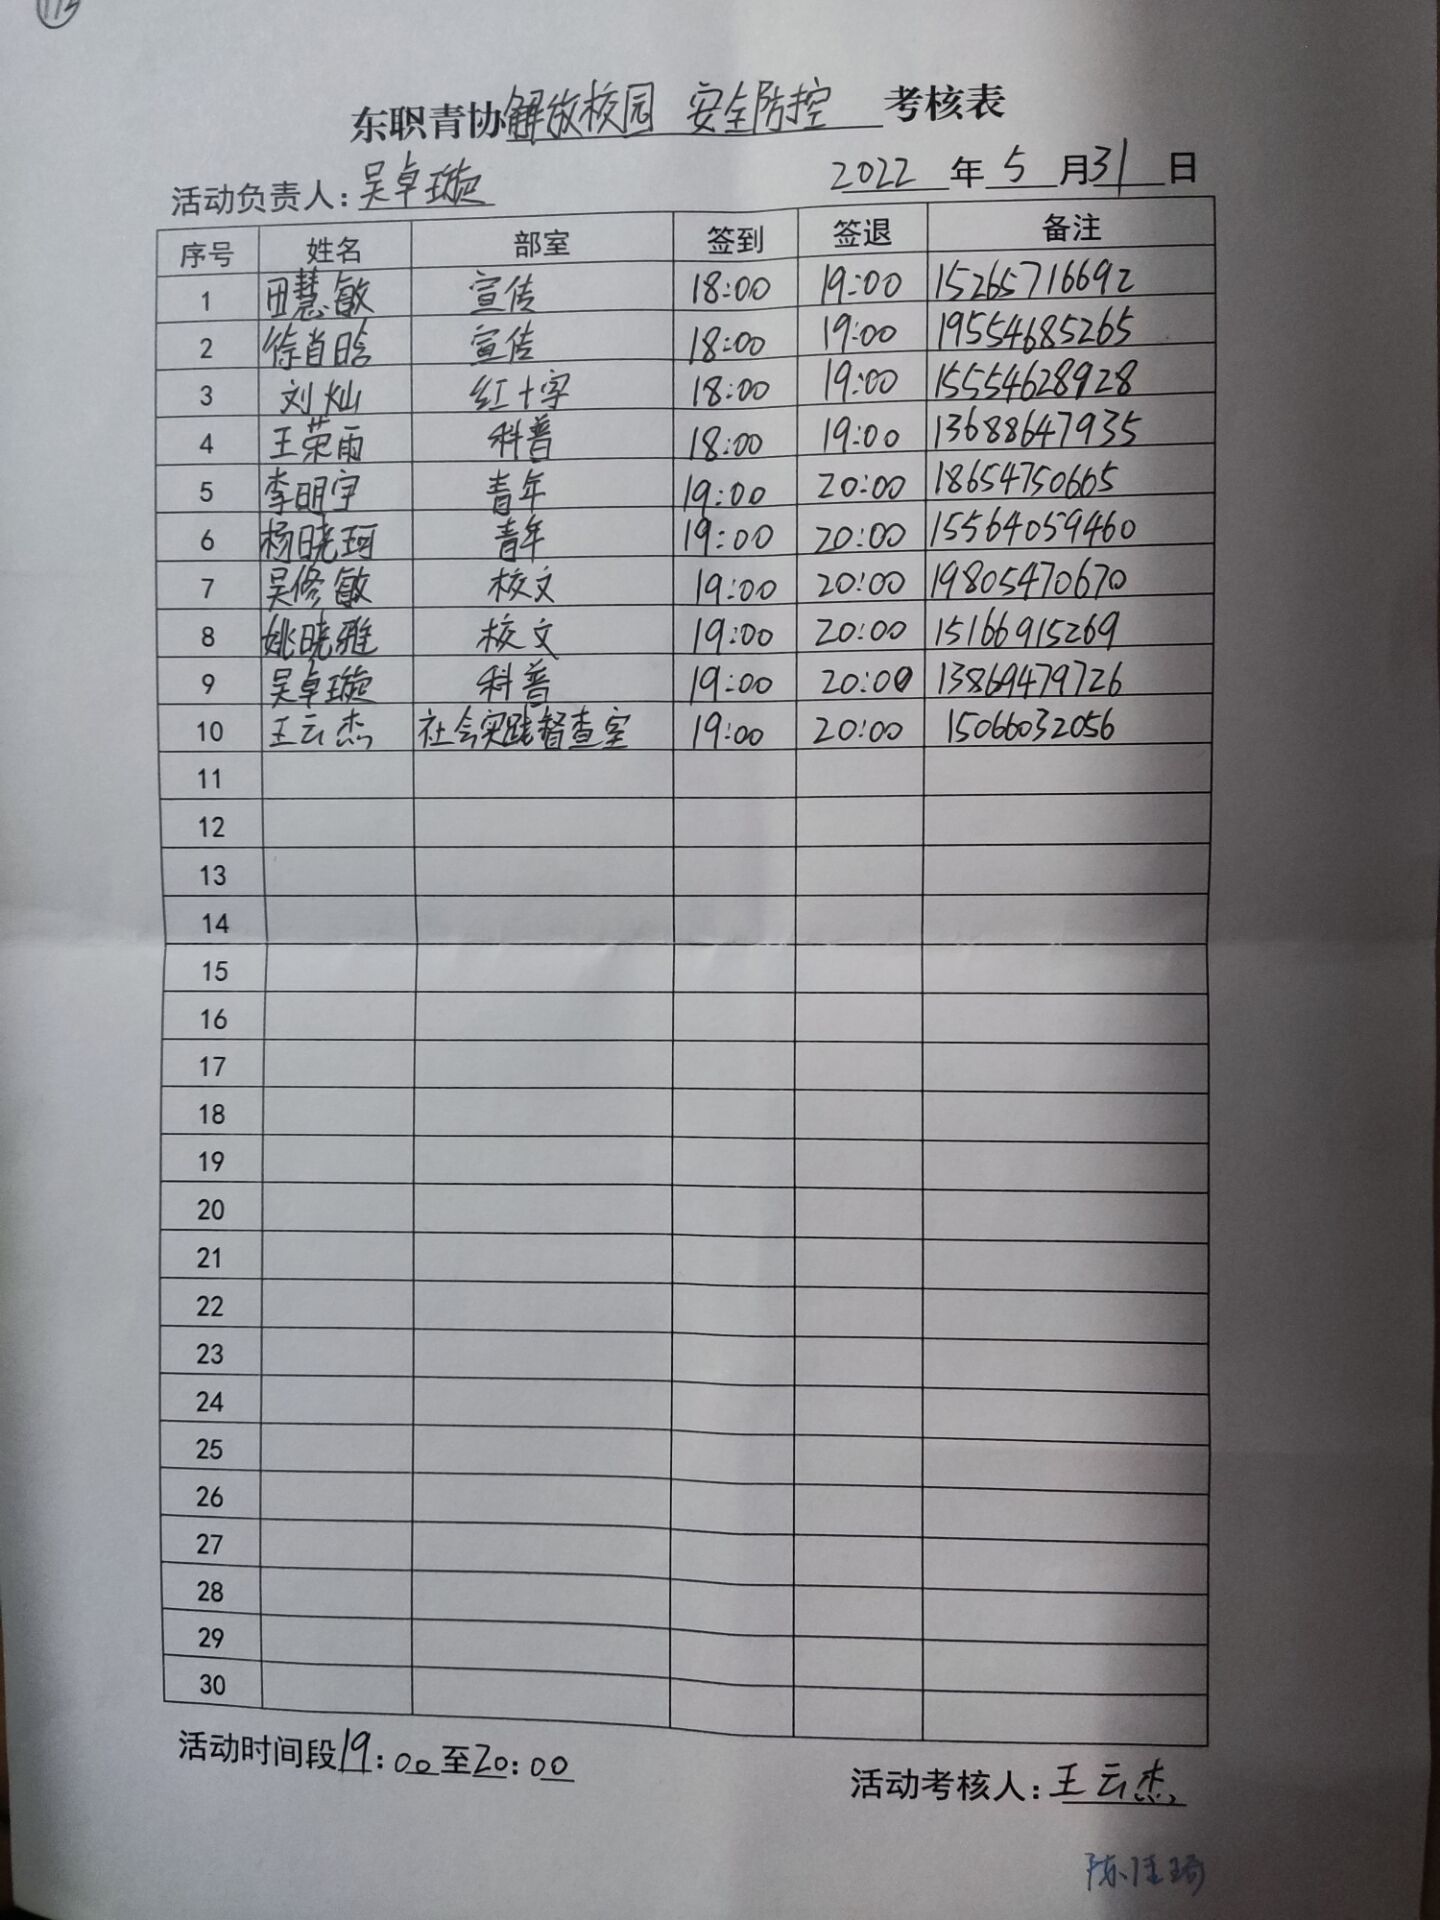 东职青协解放校园 安全防控 考核表
活动负责人:吴卓璇 2022 年 5 月 31 日
序号 姓名 部室 签到 签退 备注
1 田慧敏 宣传 18:00 19:00 15265716692
2 徐肖晗 宣传 18:00 19:00 19554685265
3 刘灿 红十字 18:00 19:00 15554628928
4 王荣雨 科普 18:00 19:00 13688647935
5 李明宇 青年 19:00 20:00 18654750665
6 杨晓珂 青年 19:00 20:00 15564059460
7 吴修敏 校文 19:00 20:00 19805470670
8 姚晓雅 校文 19:00 20:00 15166915269
9 吴卓璇 科普 19:00 20:00 13869479726
10 王云杰 社会实践督查室 19:00 20:00 15066032056
11
12
13
14
15
16
17
18
19
20
21
22
23
24
25
26
27
28
29
30
活动时间段19:00至20:00
活动考核人:王云杰